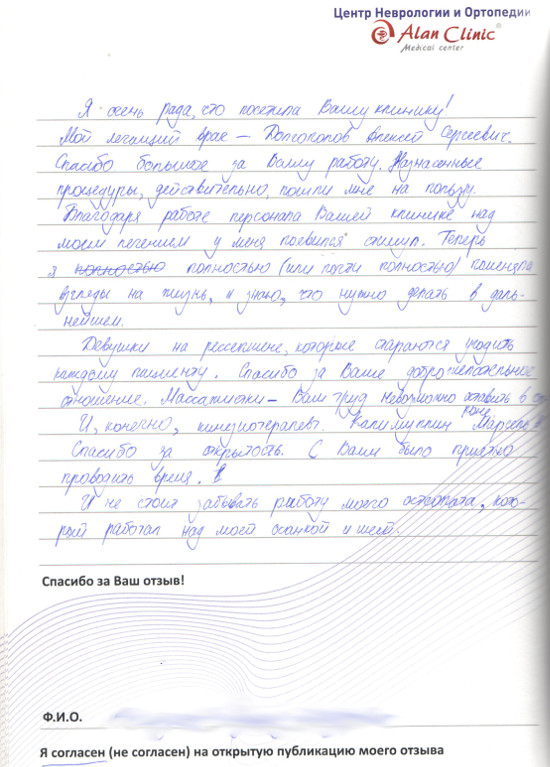 Центр Неврологии и Ортопедии
Alan Clinic®
Medical center
Я очень рада, что посетила Вашу клинику!
Мой лечащий врач – Долгополов Алексей Сергеевич.
Спасибо большое за Вашу работу. Назначенные
процедуры, действительно, пошли мне на пользу.
Благодаря работе персонала Вашей клинике над
моим лечением у меня появился стимул. Теперь
я полностью полностью (или почти полностью) поменяла
взгляды на жизнь, и знаю, что нужно делать в даль-
нейшем.
Девушки на рессепшене, которые стараются угодить
каждому пациенту. Спасибо за Ваше доброжелательное
отношение. Массажистки – Ваш труд невозможно оставить в сто-
роне
И, конечно, кинезиотерапевт. Калимуллин Марсель
Спасибо за открытость. С Вами было приятно
проводить время.
И не стоит забывать работу моего остеопата, кото-
рый работал над моей осанкой и шеей.
Спасибо за Ваш отзыв!
Ф.И.О.
Я согласен (не согласен) на открытую публикацию моего отзыва